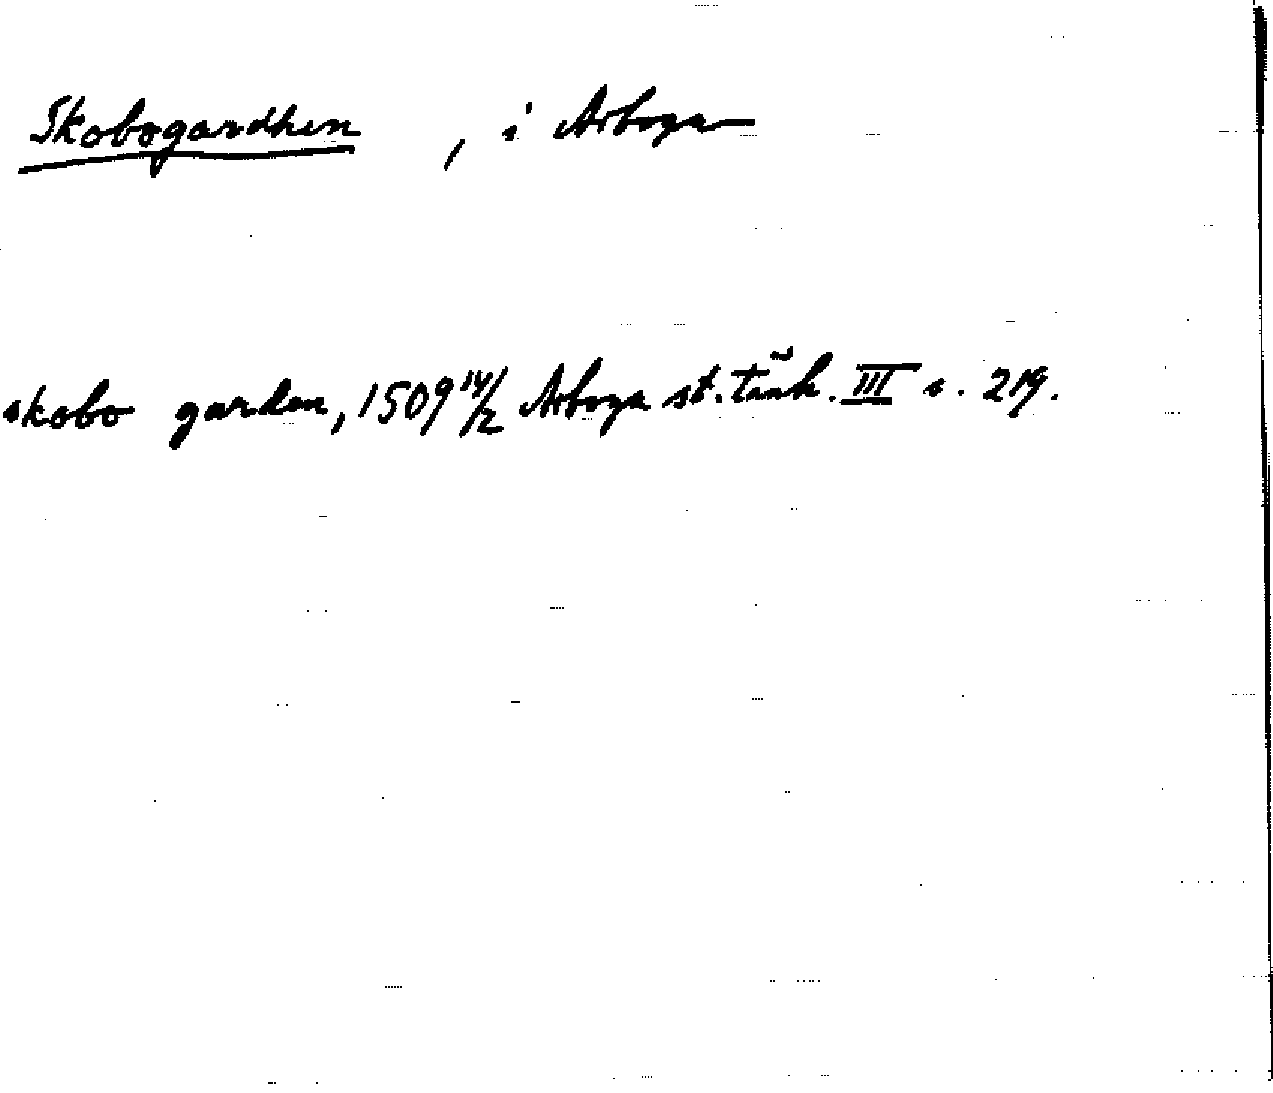 Skobogardhen , i Arboga
skobo garden, 1509 14/2 Arboga st. tänk. III s. 219.